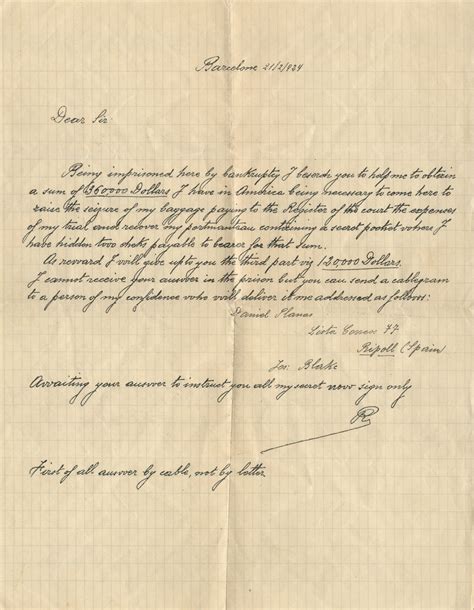 Barcelone 21/2/924
Dear Sir:
Being imprisoned here by bankruptcy I beseech you to help me to obtain
a sum of 360,000 Dollars I have in America being necessary to come here to
raise the seizure of my baggage paying to the Register of the court the expences
of my trial and recover my portmanteau containing a secret pocket where I
have hidden two checks payable to bearer for that sum.
As reward I will give up to you the third part viz 120,000 Dollars.
I cannot receive your answer in the prison but you can send a cablegram
to a person of my confidence who will deliver it me addressed as follows:
Daniel Planas
Lista Correos 77
Ripoll (Spain
For: Blerke
Awaiting your answer to instruct you all my secret now sign only
R
First of all answer by cable, not by letter